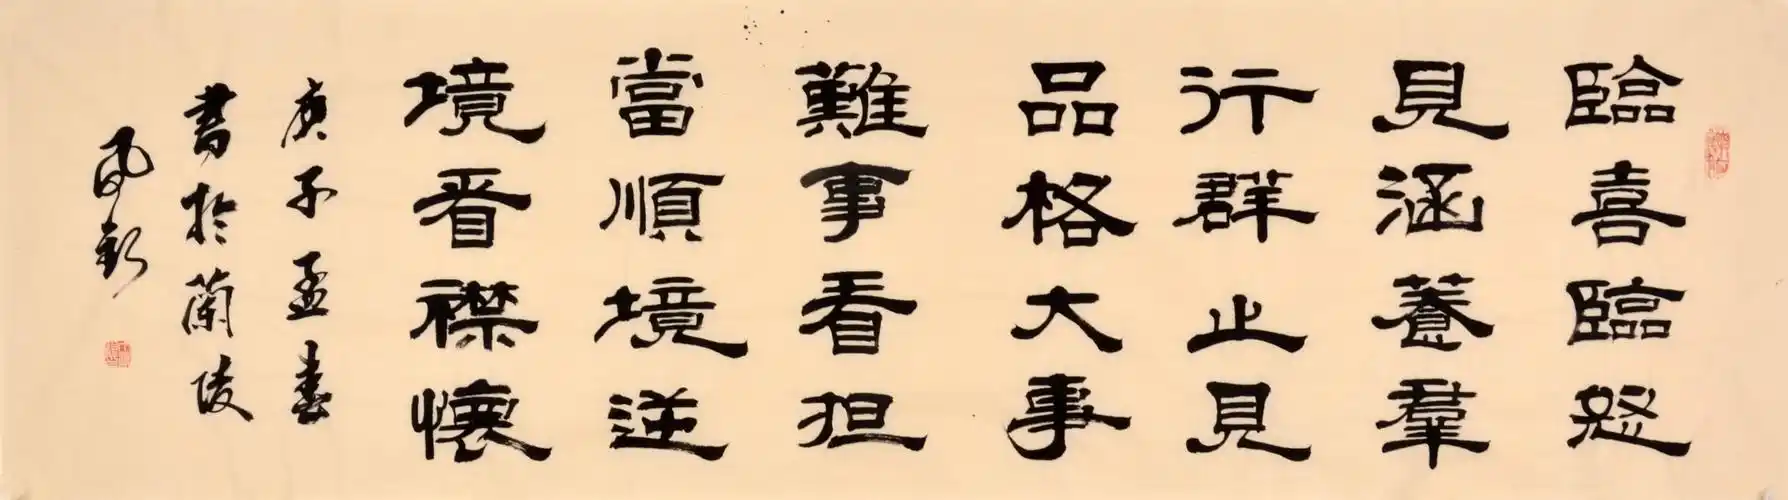 臨喜臨怒
見涵養羣
行群止見
品格大事
難事看担
當順境逆
境看襟懷
庚子孟春
書於蘭陵